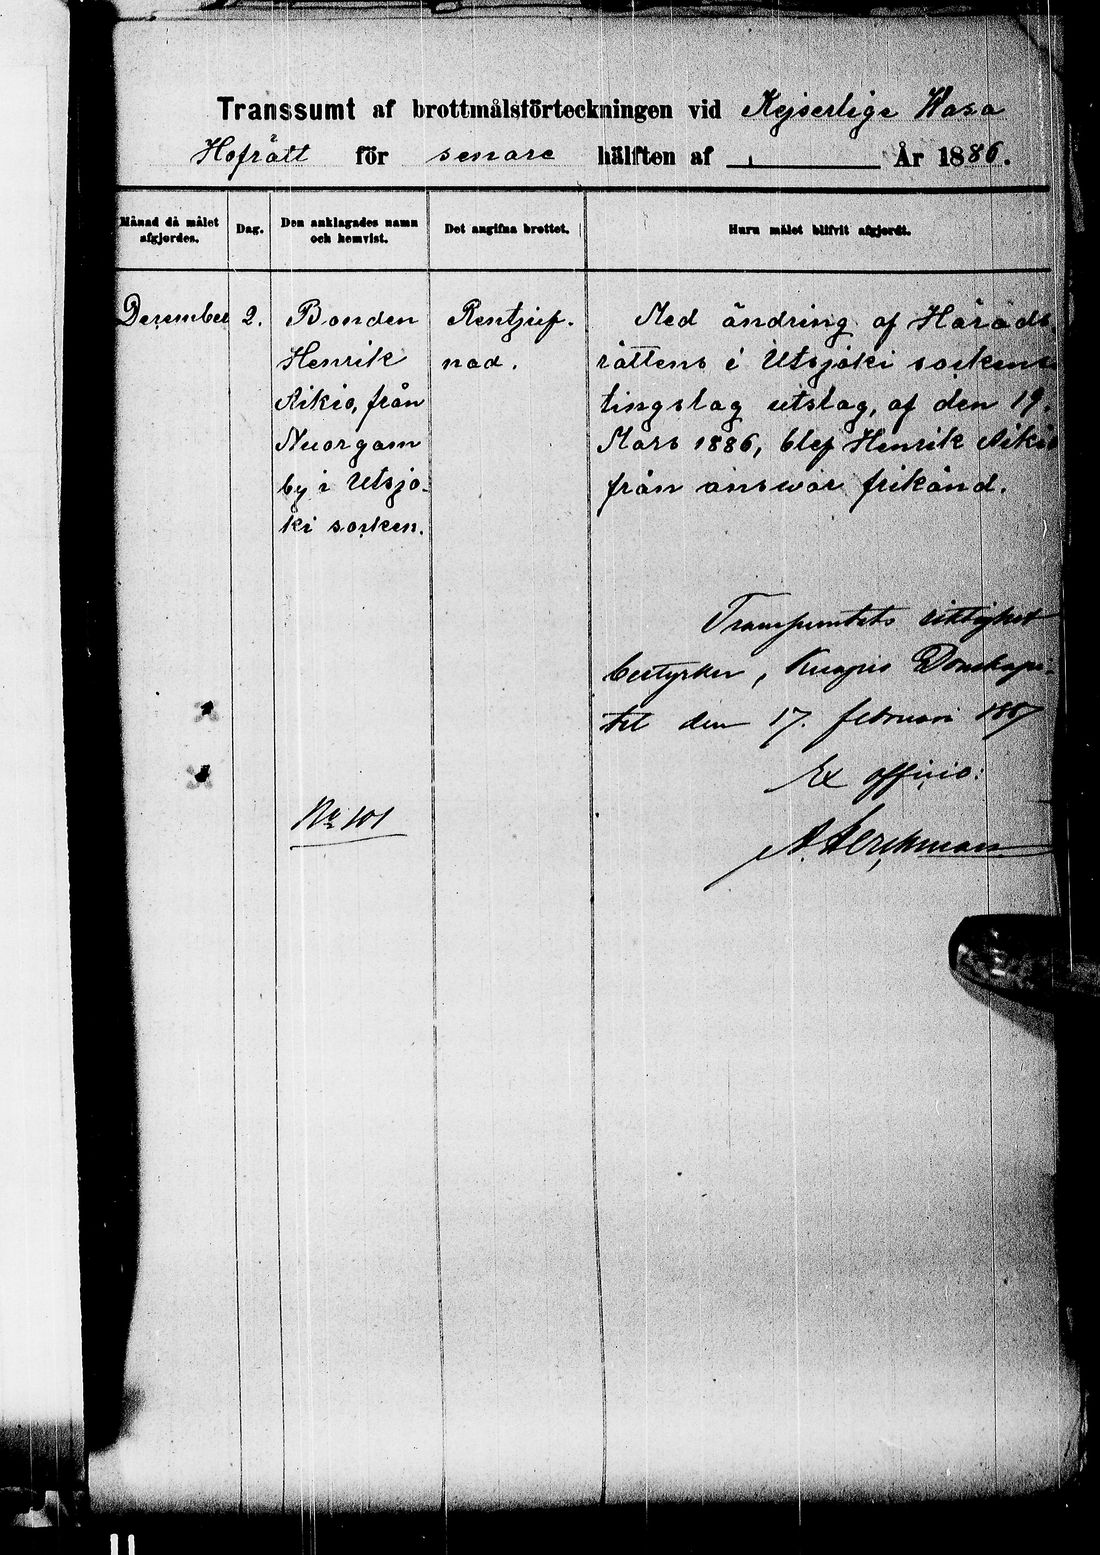 Transsumt af brottmålsförteckningen vid Kejserliga Wasa
Hofrätt för senare hälften af År 1886.
Månad då målet
afgjordes.
Dag.
Den anklagades namn
och hemvist.
Det angifna brottet.
Huru målet blifvit afgjordt.
December
2.
Bonden
Henrik
Aikio, från
Nuorgam
by i Utsjo-
ki socken.
Rentjuf-
nad.
Med ändring af Härads-
rättens i Utsjoki sockens
tingslag utslag, af den 19.
Mars 1886, blef Henrik Aikio
från answar frikänd.
Transsumtets riktighet
bestyrker, Kuopio Domkapi-
tel den 17. februari 1887
Ex officio:
No 101